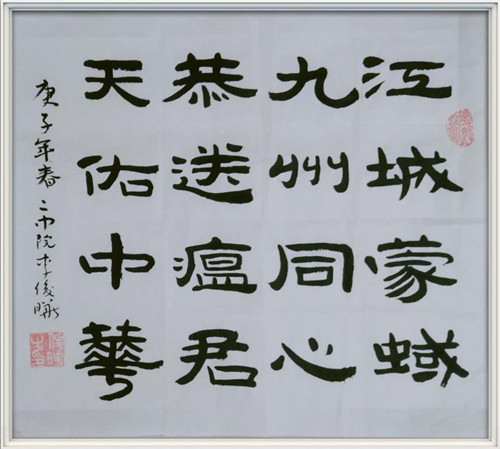 江城蒙蜮
九州同心
恭送瘟君
天佑中華
庚子年春二院李俊